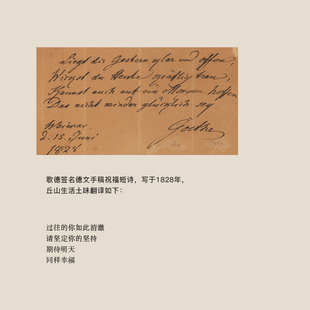 Liegt dir Gestern klar und offen,
Wirkst du Heute kräftig frey;
Kannst auch auf ein Morgen hoffen
Das nicht minder glücklich sey.
Weimar
d. 15. Juni
1828
Goethe
歌德签名德文手稿祝福短诗，写于1828年，
丘山生活土味翻译如下：
过往的你如此清澈
请坚定你的坚持
期待明天
同样幸福